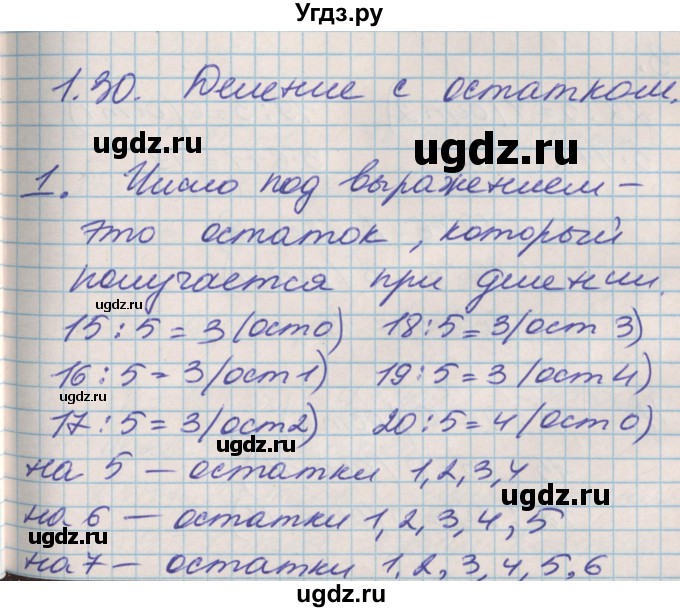 Угдз.ру
1.30. Деление с остатком.
ugdz.ru
ugdz.ru
1. Число под выражением –
это остаток, который
ugdz.ru
получается при делении.
ugdz.ru
15 : 5 = 3 (ост 0) 18 : 5 = 3 (ост 3)
ugdz.ru
16 : 5 = 3 (ост 1) 19 : 5 = 3 (ост 4)
ugdz.ru
17 : 5 = 3 (ост 2) 20 : 5 = 4 (ост 0)
ugdz.ru
ugdz.ru
на 5 – остатки 1, 2, 3, 4
ugdz.ru
на 6 – остатки 1, 2, 3, 4, 5
ugdz.ru
на 7 – остатки 1, 2, 3, 4, 5, 6
ugdz.ru
ugdz.ru